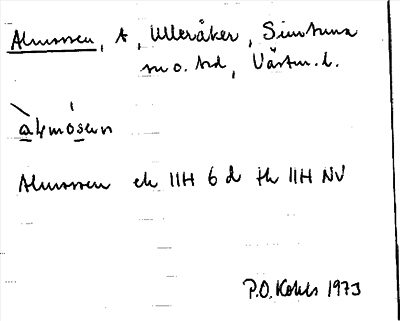 Almossen, t, Ulleråker, Simtuna
m o. hd, Västm. l.
almósen
Almossen ek 11H 6 d fk 11H NV
P.O. Kohls 1973